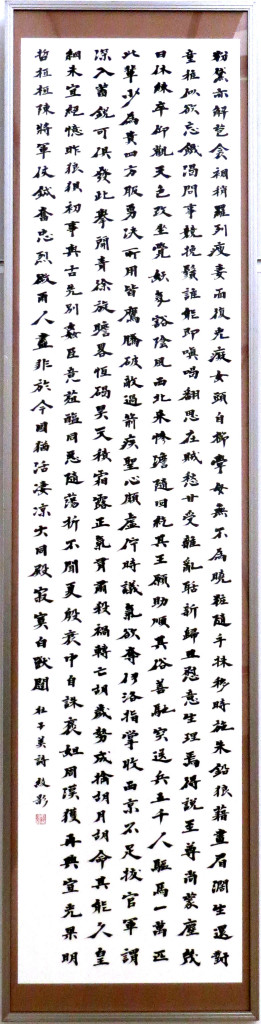 粉黛亦解苞衾裯稍羅列瘦妻面復光癡女頭自櫛學母無不為曉粧隨手抹移時施朱鉛狼藉畫眉闊生還對
童稚似欲忘饑渴問事競挽鬚誰能即嗔喝翻思在賊愁甘受雜亂聒新歸且慰意生理焉得說至尊尚蒙塵幾
日休練卒仰觀天色改坐覺妖氛豁陰風西北來慘澹隨回紇其王願助順其俗善馳突送兵五千人驅馬一萬匹
此輩少為貴四方服勇決所用皆鷹騰破敵過箭疾聖心頗虛佇時議氣欲奪伊洛指掌收西京不足拔官軍請
深入蓄銳可俱發此舉開青徐旋瞻略恆碣昊天積霜露正氣有肅殺禍轉亡胡歲勢成擒胡月胡命其能久皇
綱未宜絕憶昨狼狽初事與古先別姦臣竟菹醢同惡隨蕩析不聞夏殷衰中自誅褒妲周漢獲再興宣光果明
哲桓桓陳將軍仗鉞奮忠烈微爾人盡非於今國猶活淒涼大同殿寂寞白獸闥 杜子美詩